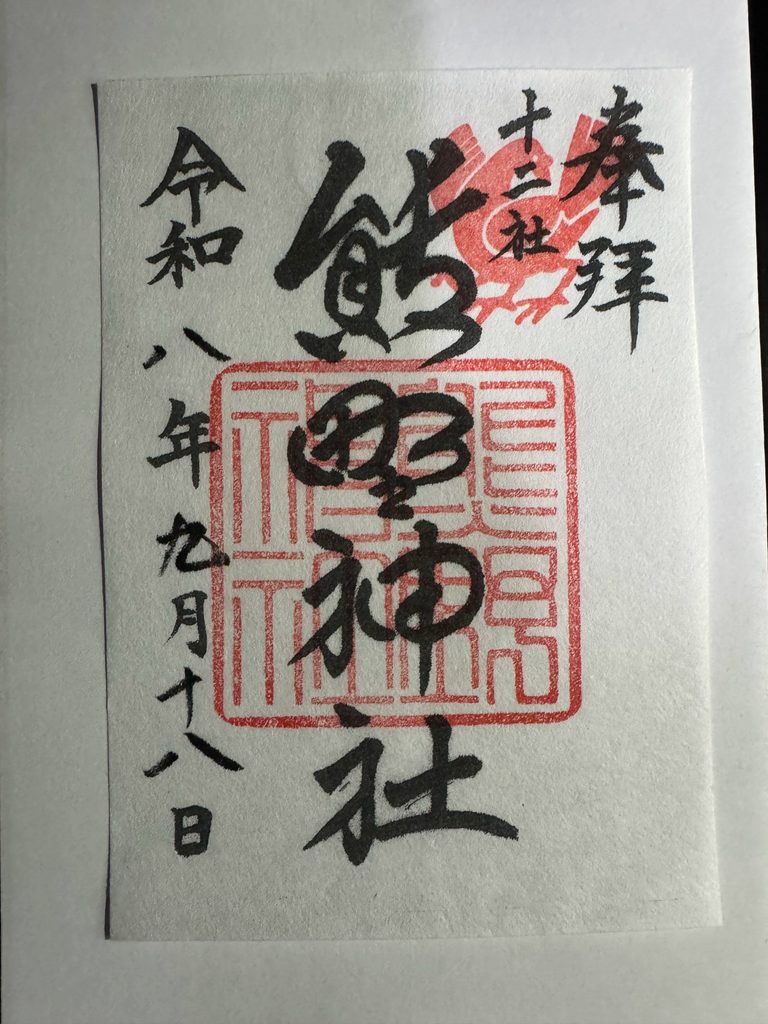 奉拝
十二社
熊野神社
令和八年九月十八日